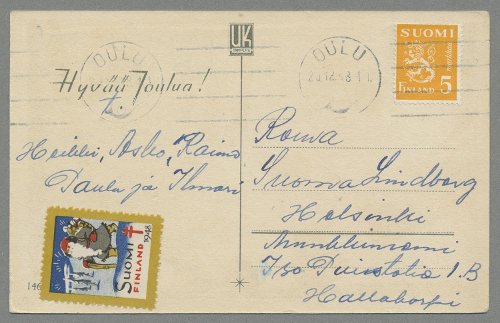 OULU
UK
OULU
20.12.48.11.
SUOMI
5
markkaa
FINLAND
Hyvää Joulua!
t.
Heikki, Asko, Raimo
Paula ja Ilmari
Rouva
Suoma Lindborg
Helsinki
Munkkiniemi
Iso Puistotie 1.B
SUOMI
FINLAND
1948
146